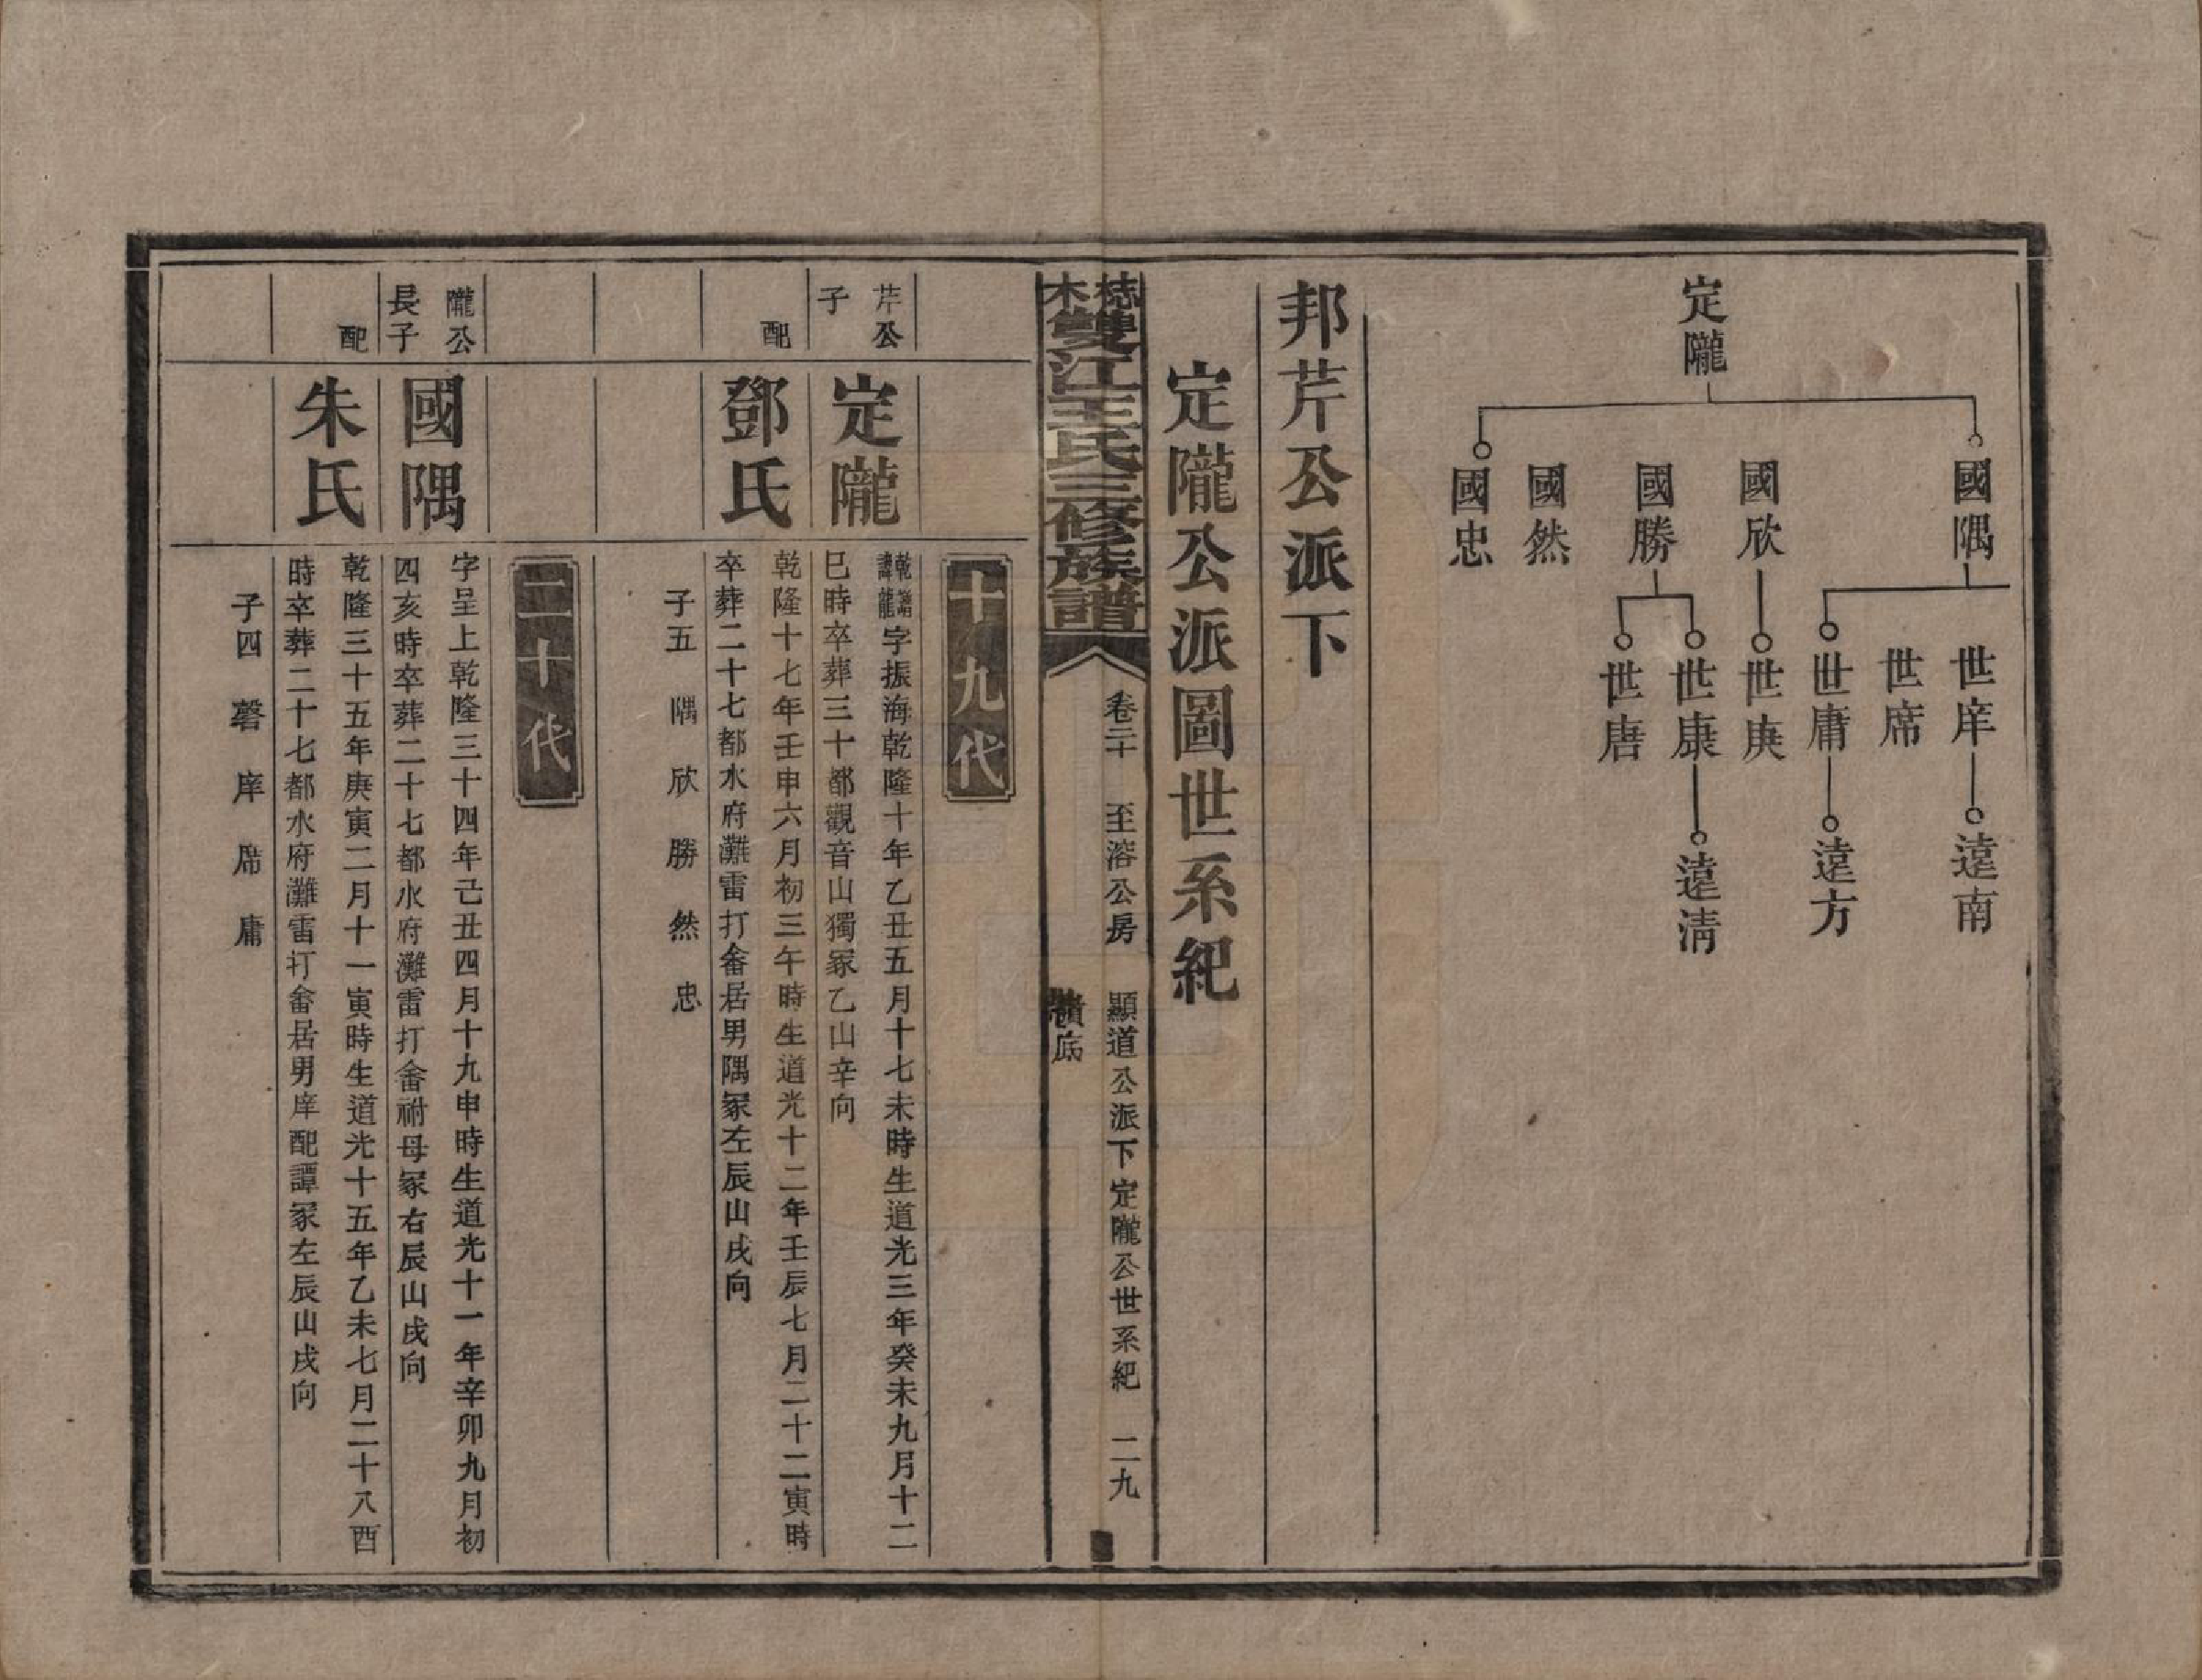 定隴
國隅
國欣
國勝
國然
國忠
世庠
世席
世庸
世庚
世康
世唐
遠南
遠方
遠淸
邦芹公派下
定隴公派圖世系紀
雙江王氏三修族譜
卷二十 至溶公房 顯道公派下定隴公世系紀 二九
十九代
芹公子
定隴
乾譜諱龍字振海乾隆十年乙丑五月十七未時生道光三年癸未九月十二
巳時卒葬三十都觀音山獨冢乙山辛向
配
鄧氏
乾隆十七年壬申六月初三午時生道光十二年壬辰七月二十二寅時
卒葬二十七都水府灘雷打畬居男隅冢左辰山戌向
子五 隅 欣 勝 然 忠
二十代
隴公長子
國隅
字呈上乾隆三十四年己丑四月十九申時生道光十一年辛卯九月初
四亥時卒葬二十七都水府灘雷打畬祔母冢右辰山戌向
配
朱氏
乾隆三十五年庚寅二月十一寅時生道光十五年乙未七月二十八酉
時卒葬二十七都水府灘雷打畬居男庠配譚冢左辰山戌向
子四 磬 庠 席 庸